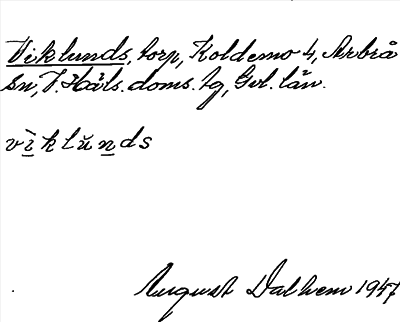 Viklunds, torp, Koldemo 4, Arbrå
sn, V. Häls. doms. lg, Gvl. län.
vìklŭnds
August Dalhem 1947